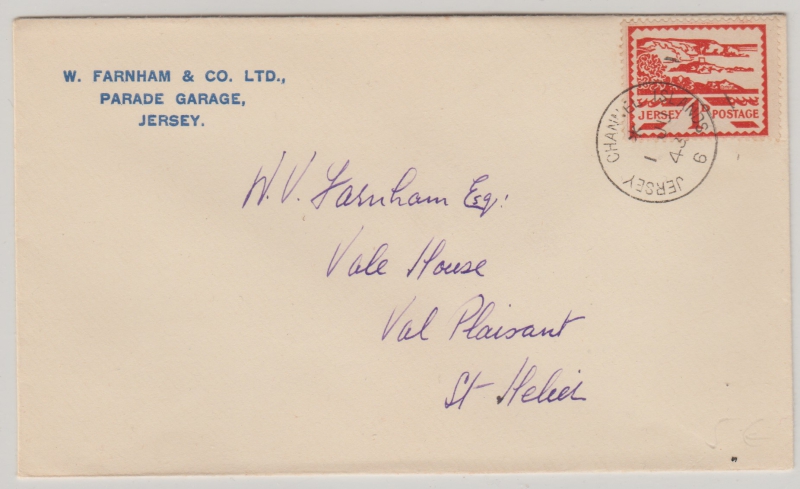 W. FARNHAM & CO. LTD.,
PARADE GARAGE,
JERSEY.
JERSEY 1D POSTAGE
JERSEY CHANNEL ISLANDS
1 JU 43
6
W. V. Farnham Esq:
Vale House
Val Plaisant
St Helier